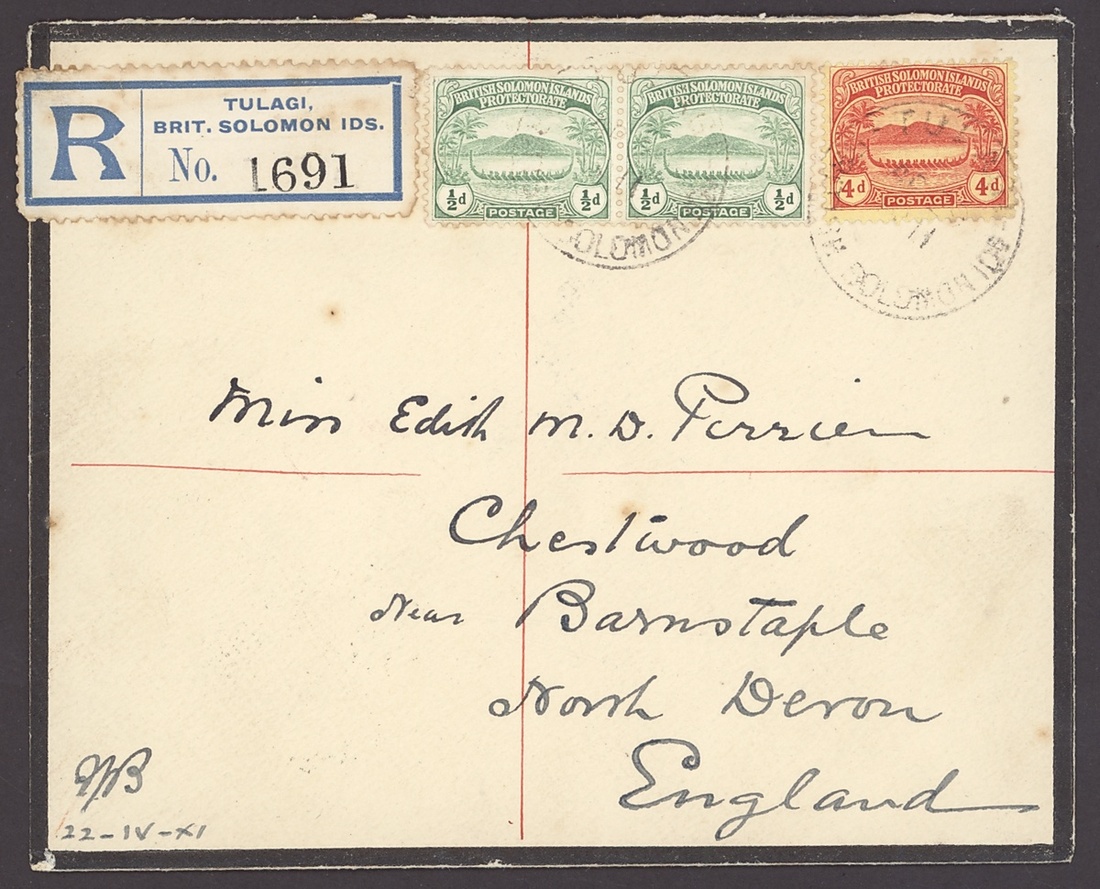 R
TULAGI,
BRIT. SOLOMON IDS.
No. 1691
BRITISH SOLOMON ISLANDS
PROTECTORATE
½d ½d
POSTAGE
BRITISH SOLOMON ISLANDS
PROTECTORATE
½d ½d
POSTAGE
BRITISH SOLOMON ISLANDS
PROTECTORATE
4d 4d
POSTAGE
SOLOMON
11
Miss Edith M. D. Perrier
Chestwood
Near Barnstaple
North Devon
England
22-IV-XI